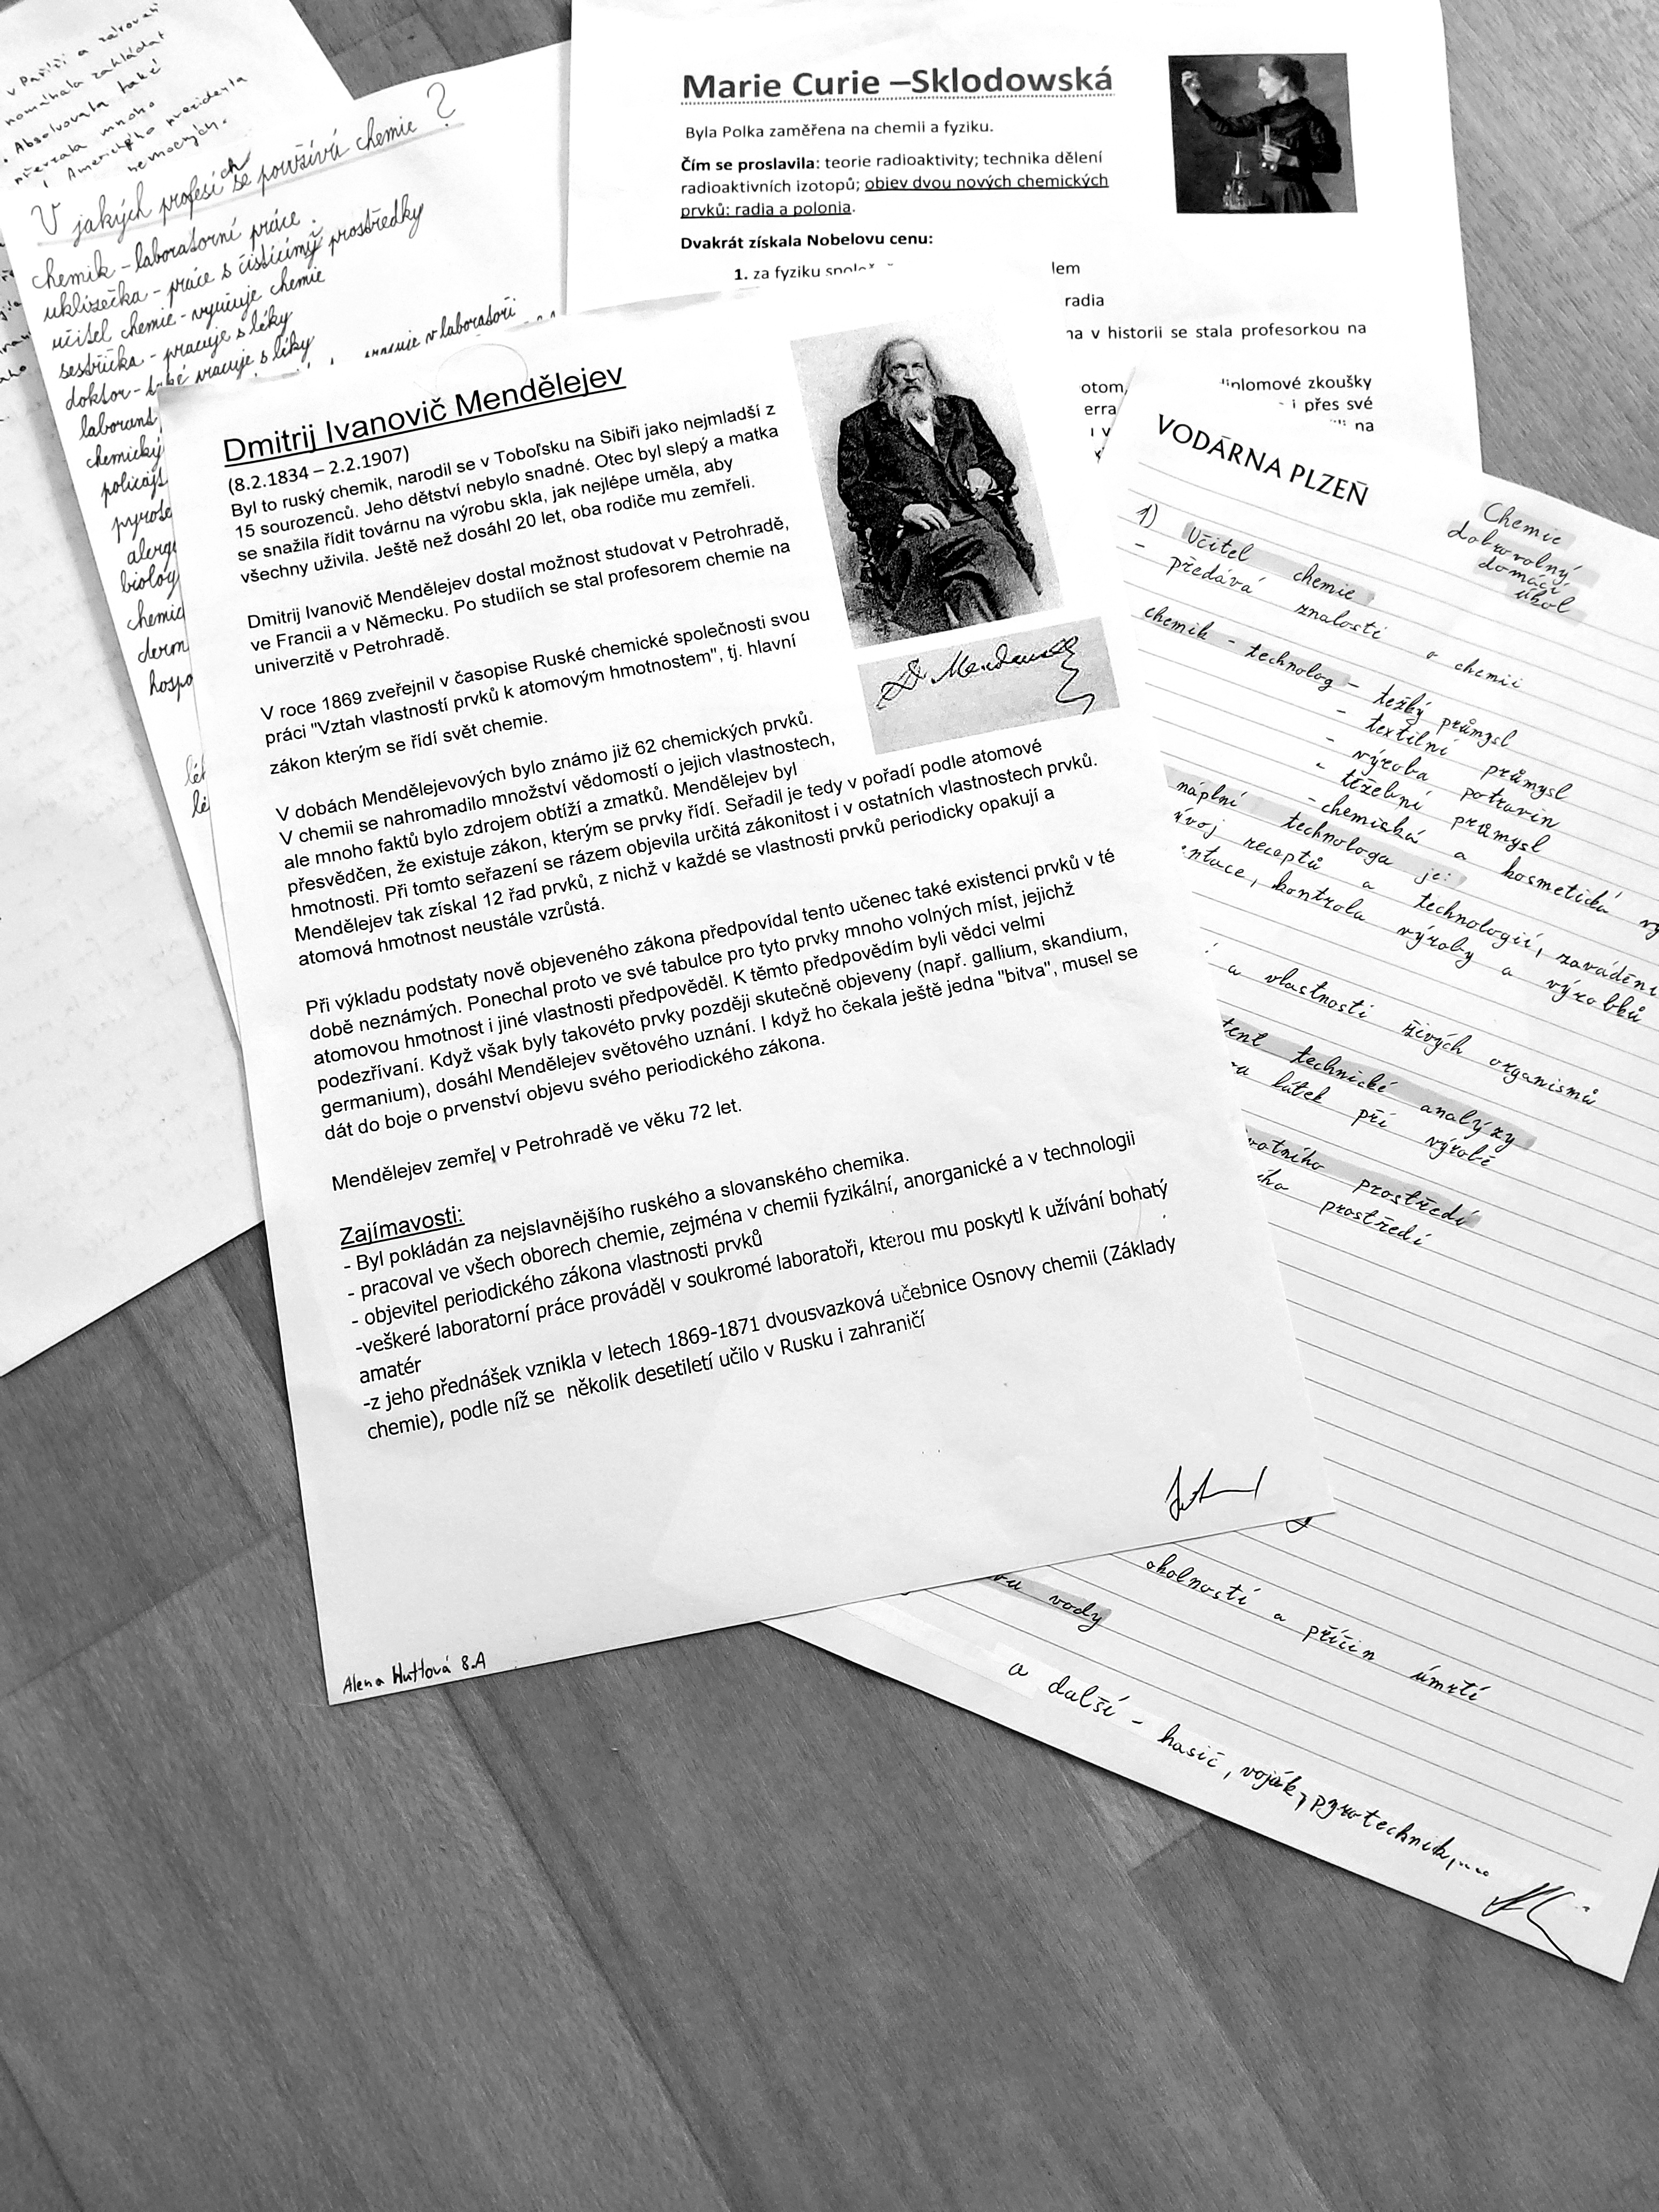 v Paříži a zároveň
pomáhala zakládat
Absolvovala také
převzala mnoho
i Amerického prezidenta
nemocných.
V jakých profesích se používá chemie?
chemik - laboratorní práce
uklízečka - práce s čistícímy prostředky
učitel chemie - vyučuje chemie
sestřička - pracuje s léky
doktor - také pracuje s léky
laborant
v laboratoři
chemický
policajt
biolog
Marie Curie –Sklodowská
Byla Polka zaměřena na chemii a fyziku.
Čím se proslavila: teorie radioaktivity; technika dělení
radioaktivních izotopů; objev dvou nových chemických
prvků: radia a polonia.
Dvakrát získala Nobelovu cenu:
1. za fyziku
lem
radia
na v historii se stala profesorkou na
otom, diplomové zkoušky
erra i přes své
i v na
Dmitrij Ivanovič Mendělejev
(8.2.1834 – 2.2.1907)
Byl to ruský chemik, narodil se v Toboľsku na Sibiři jako nejmladší z
15 sourozenců. Jeho dětství nebylo snadné. Otec byl slepý a matka
se snažila řídit továrnu na výrobu skla, jak nejlépe uměla, aby
všechny uživila. Ještě než dosáhl 20 let, oba rodiče mu zemřeli.
Dmitrij Ivanovič Mendělejev dostal možnost studovat v Petrohradě,
ve Francii a v Německu. Po studiích se stal profesorem chemie na
univerzitě v Petrohradě.
V roce 1869 zveřejnil v časopise Ruské chemické společnosti svou
práci "Vztah vlastností prvků k atomovým hmotnostem", tj. hlavní
zákon kterým se řídí svět chemie.
V dobách Mendělejevových bylo známo již 62 chemických prvků.
V chemii se nahromadilo množství vědomostí o jejich vlastnostech,
ale mnoho faktů bylo zdrojem obtíží a zmatků. Mendělejev byl
přesvědčen, že existuje zákon, kterým se prvky řídí. Seřadil je tedy v pořadí podle atomové
hmotnosti. Při tomto seřazení se rázem objevila určitá zákonitost i v ostatních vlastnostech prvků.
Mendělejev tak získal 12 řad prvků, z nichž v každé se vlastnosti prvků periodicky opakují a
atomová hmotnost neustále vzrůstá.
Při výkladu podstaty nově objeveného zákona předpovídal tento učenec také existenci prvků v té
době neznámých. Ponechal proto ve své tabulce pro tyto prvky mnoho volných míst, jejichž
atomovou hmotnost i jiné vlastnosti předpověděl. K těmto předpovědím byli vědci velmi
podezřívaní. Když však byly takovéto prvky později skutečně objeveny (např. gallium, skandium,
germanium), dosáhl Mendělejev světového uznání. I když ho čekala ještě jedna "bitva", musel se
dát do boje o prvenství objevu svého periodického zákona.
Mendělejev zemřel v Petrohradě ve věku 72 let.
Zajímavosti:
- Byl pokládán za nejslavnějšího ruského a slovanského chemika.
- pracoval ve všech oborech chemie, zejména v chemii fyzikální, anorganické a v technologii
- objevitel periodického zákona vlastnosti prvků
-veškeré laboratorní práce prováděl v soukromé laboratoři, kterou mu poskytl k užívání bohatý
amatér
-z jeho přednášek vznikla v letech 1869-1871 dvousvazková učebnice Osnovy chemii (Základy
chemie), podle níž se několik desetiletí učilo v Rusku i zahraničí
Alena Huttová 8.A
VODÁRNA PLZEŇ
Chemie
dobrovolný
domácí
úkol
1) Učitel chemie
- předává znalosti o chemii
chemik - technolog - težký průmysl
- textilní průmysl
- výroba potravin
- těžební průmysl
- chemická a kosmetická
náplní technologa je:
vývoj receptů a technologií, zavádění
kontrola výroby a výrobků
a vlastnosti živých organismů
technické analýzy
látek při výrobě
prostředí
prostředí
vody
okolností a příčin úmrtí
a další - hasič, voják, pyrotechnik,....